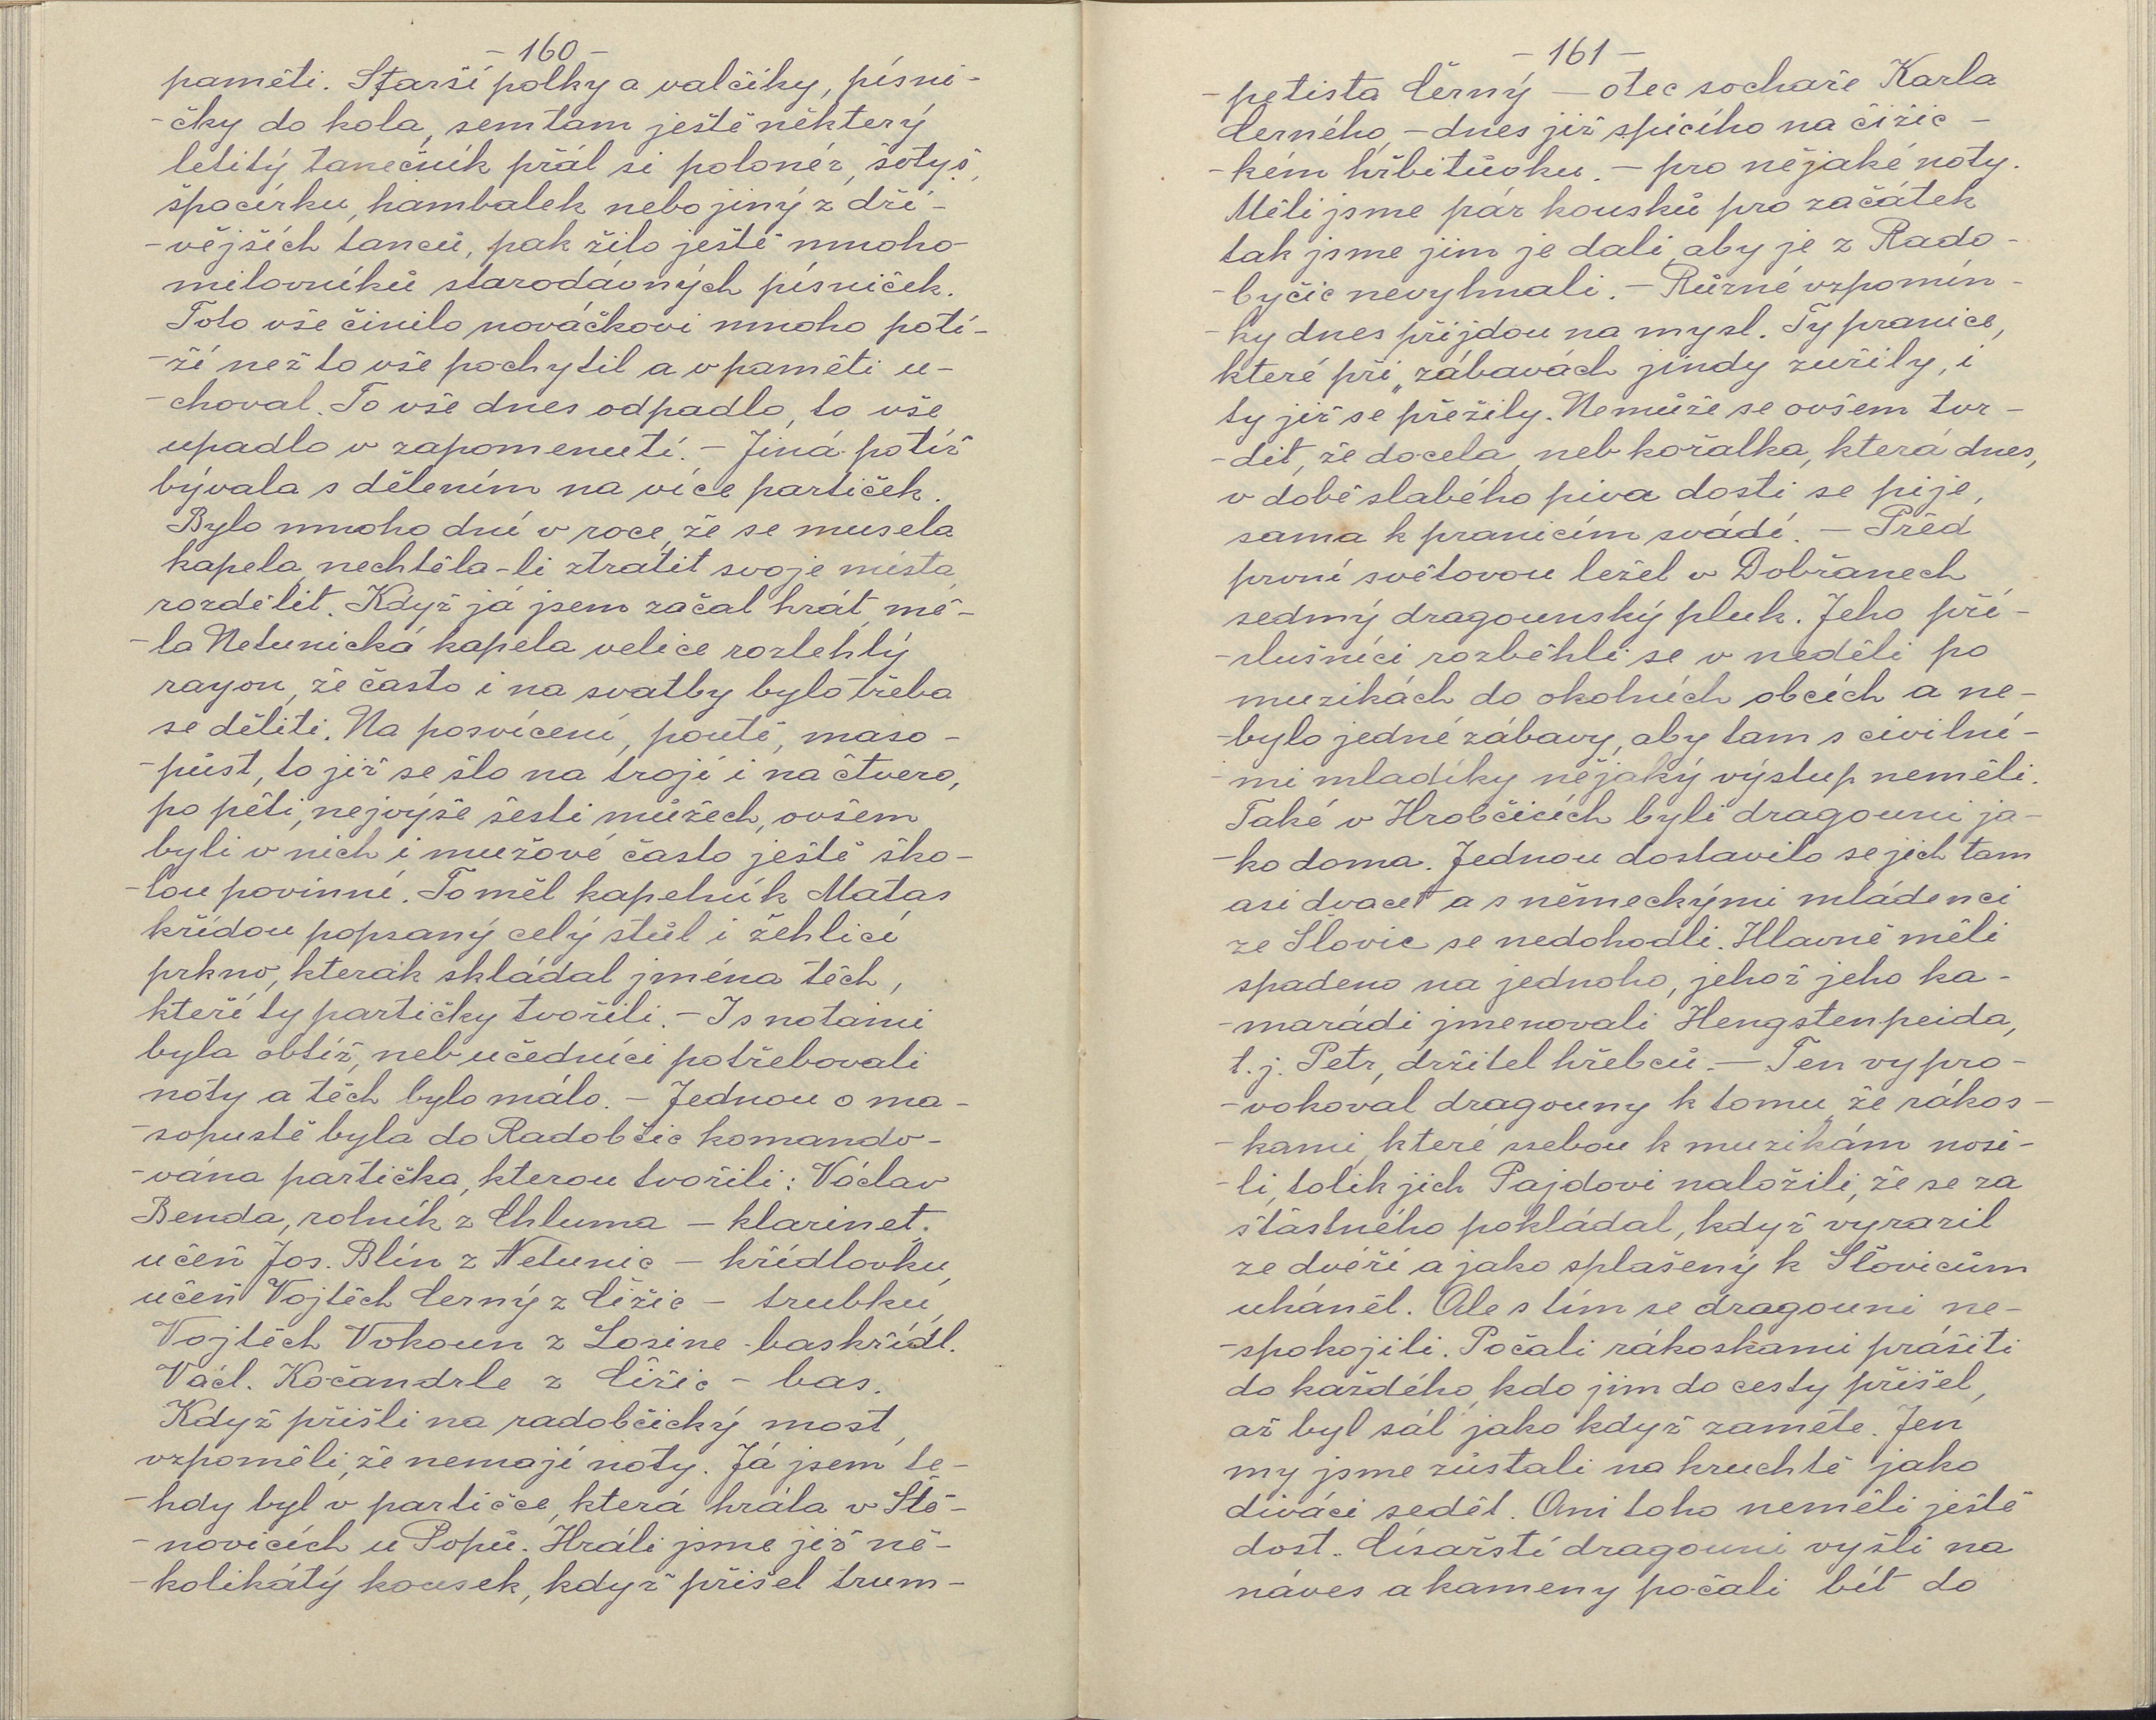 - 160 -
paměti. Starší polky a valčíky, písni-
-čky do kola, semtam ještě některý
letitý tanečník přál si polonéz, šotyš,
špacírku, hambalek nebo jiný z dří-
-vějších tanců, pak žilo ještě mnoho
milovníků starodávných písniček.
Toto vše činilo nováčkovi mnoho potí-
-ží než to vše pochytil a v paměti u-
-choval. To vše dnes odpadlo, to vše
upadlo v zapomenutí. - Jiná potíž
bývala s dělením na více partiček.
Bylo mnoho dní v roce, že se musela
kapela, nechtěla-li ztratit svoje místa,
rozdělit. Když já jsem začal hrát, mě-
-la Netunická kapela velice rozlehlý
rayon, že často i na svatby bylo třeba
se děliti. Na posvícení, poutě, maso-
-půst, to již se šlo na trojí i na čtvero,
po pěti, nejvýše šesti mužech, ovšem
byli v nich i mužové často ještě ško-
-lou povinní. To měl kapelník Matas
křídou popsaný celý stůl i žehlící
prkno, kterak skládal jména těch,
kteří ty partičky tvořili. - I s notami
byla obtíž, neb učedníci potřebovali
noty a těch bylo málo. - Jednou o ma-
-sopustě byla do Radobčic komando-
-vána partička, kterou tvořili: Václav
Benda, rolník z Chluma - klarinet.
učeň Jos. Blín z Netunic - křídlovku,
učeň Vojtěch Černý z Čižic - trubku,
Vojtěch Vokoun z Losine - baskřídl.
Václ. Kočandrle z Čižic - bas.
Když přišli na radobčický most,
vzpoměli, že nemají noty. Já jsem te-
-hdy byl v partičce, která hrála v Ště-
-novicích u Popů. Hráli jsme již ně-
-kolikátý kousek, když přišel trum-
- 161 -
-petista Černý - otec sochaře Karla
Černého, - dnes již spícího na čižic-
-kém hřbitůvku. - pro nějaké noty.
Měli jsme pár kousků pro začátek
tak jsme jim je dali, aby je z Rado-
-byčic nevyhnali. - Různé vzpomín-
-ky dnes přijdou na mysl. Ty pranice,
které při „zábavách jindy zuřily, i
ty již se přežily. Nemůže se ovšem tvr-
-dit, že docela, neb kořalka, která dnes,
v době slabého piva dosti se pije,
sama k pranicím svádí. - Před
první světovou ležel v Dobřanech
sedmý dragounský pluk. Jeho pří-
-slušníci rozběhli se v neděli po
muzikách do okolních obcích a ne-
-bylo jedné zábavy, aby tam s civilní-
-mi mladíky nějaký výstup neměli.
Také v Hrobčicích byli dragouni ja-
-ko doma. Jednou dostavilo se jich tam
asi dvacet a s německými mládenci
ze Šlovic se nedohodli. Hlavně měli
spadeno na jednoho, jehož jeho ka-
-marádi jmenovali Hengstenpeida,
t. j. Petr, držitel hřebců. - Ten vypro-
-vokoval dragouny k tomu, že rákos-
-kami, které ssebou k muzikám nosi-
-li, tolik jich Pajdovi naložili, že se za
šťastného pokládal, když vyrazil
ze dveří a jako splašený k Šlovicům
uháněl. Ale s tím se dragouni ne-
-spokojili. Počali rákoskami prášiti
do každého, kdo jim do cesty přišel,
až byl sál jako když zamete. Jen
my jsme zůstali na kruchtě jako
diváci sedět. Oni toho neměli ještě
dost. Císařští dragouni vyšli na
náves a kameny počali bít do